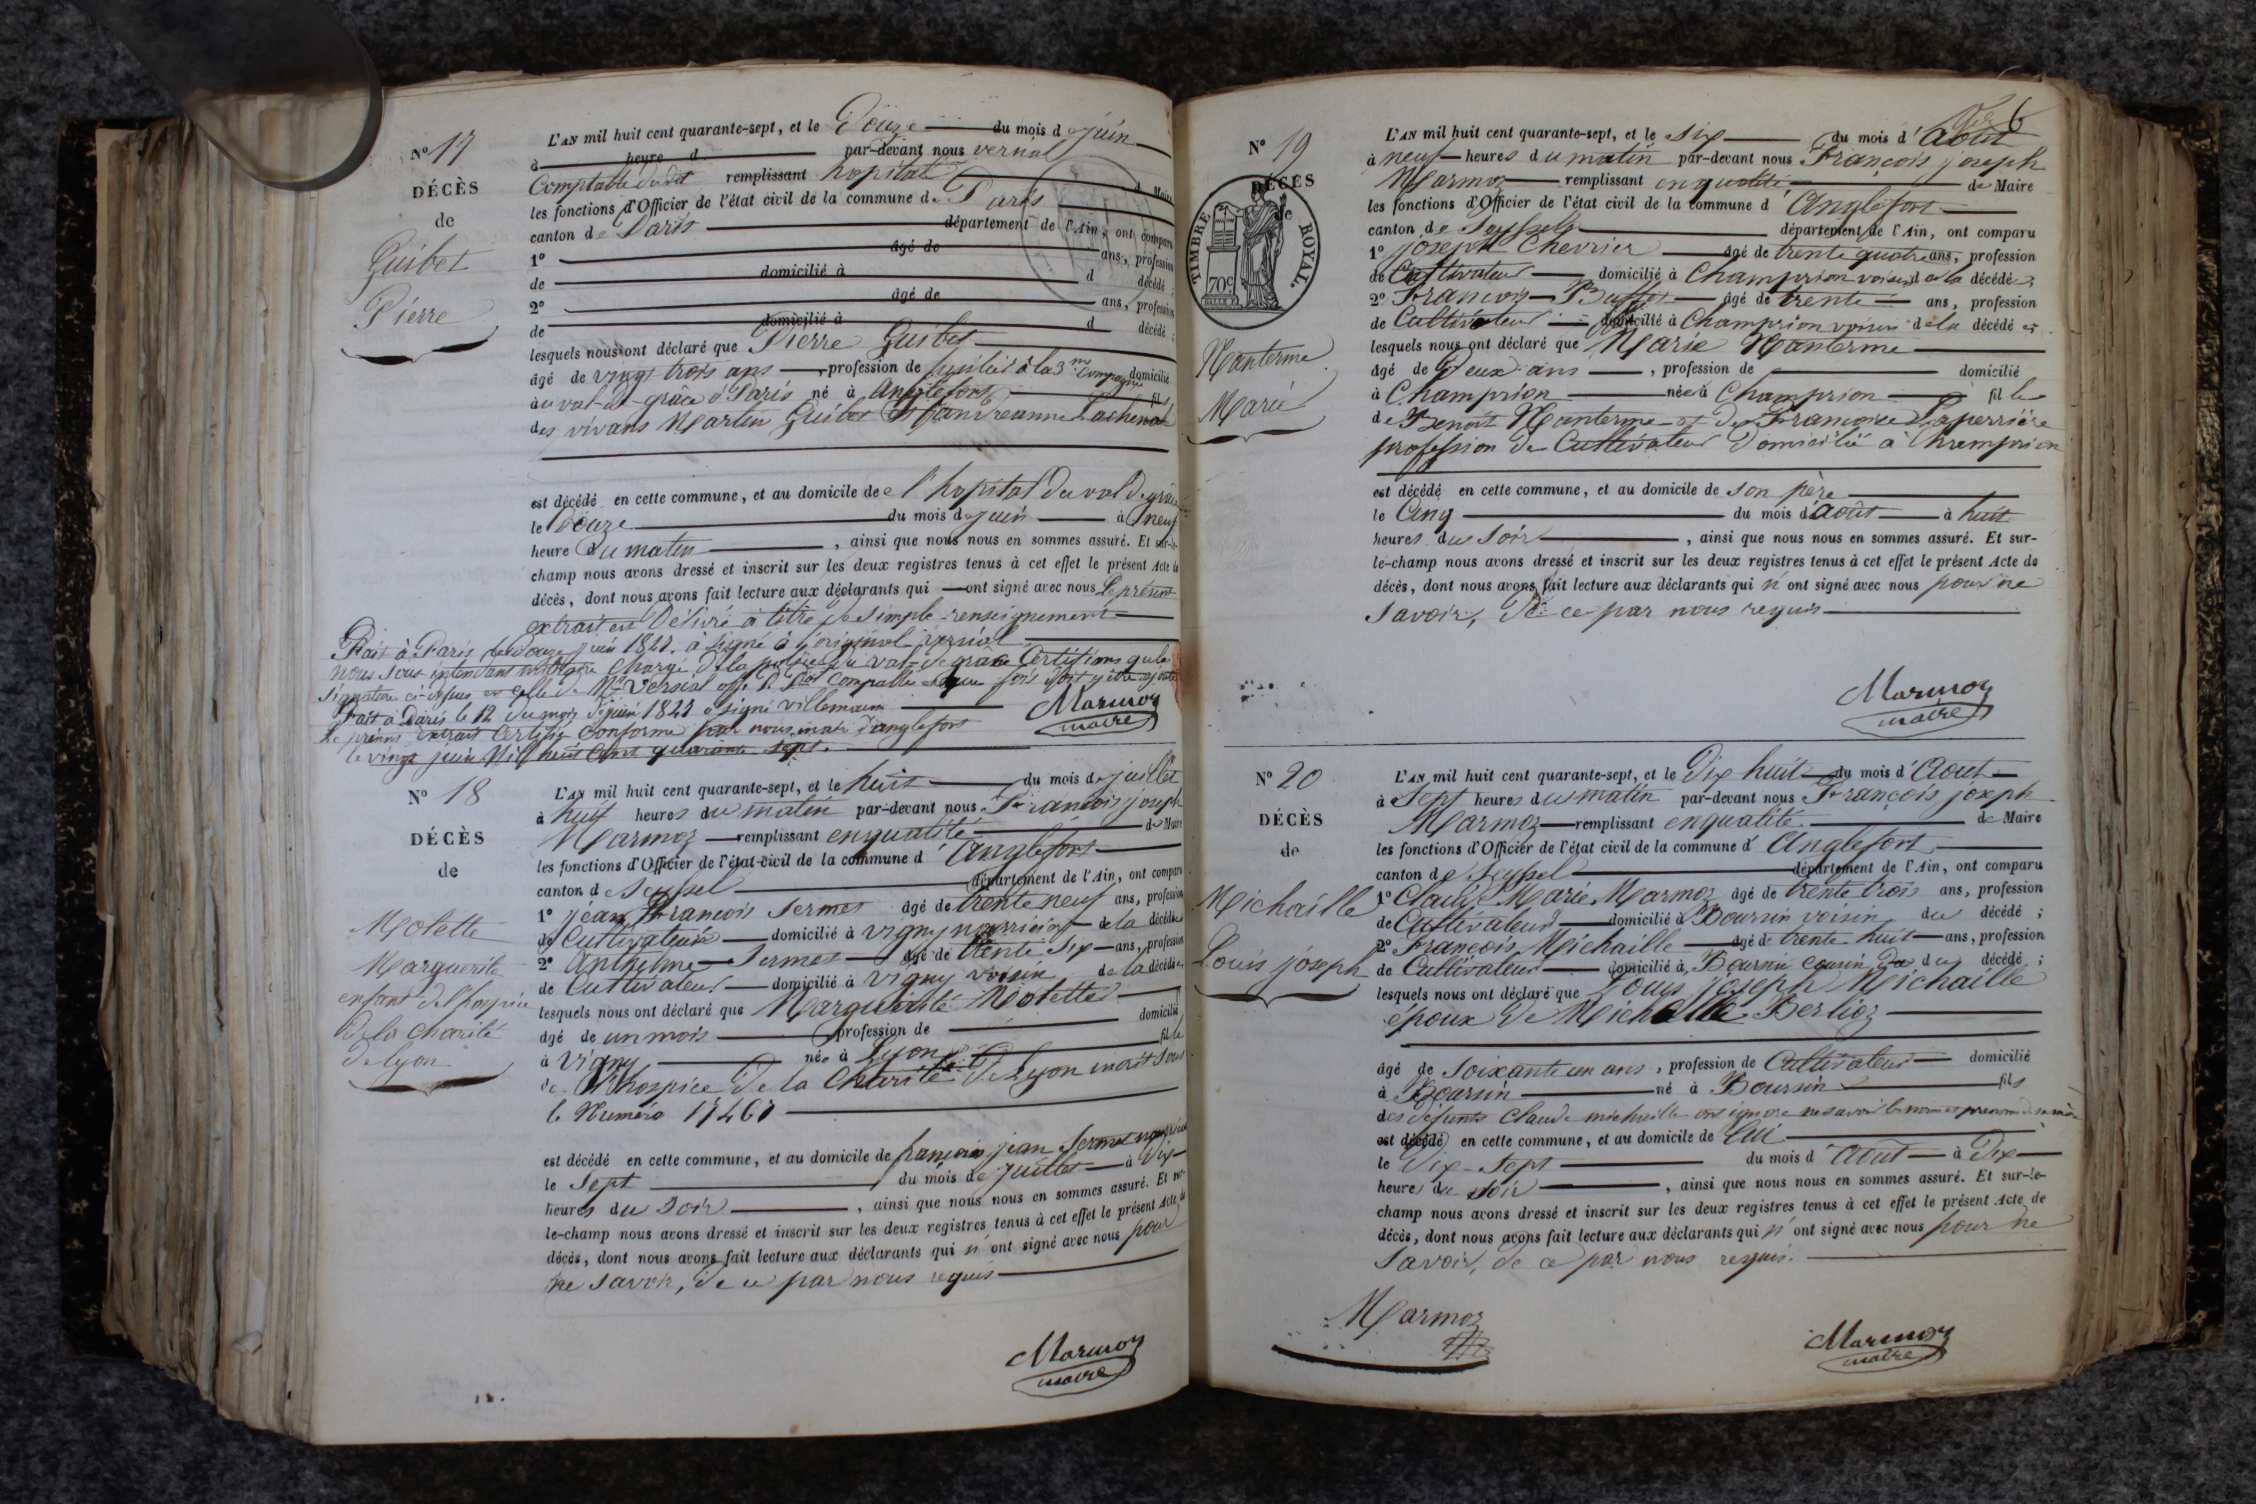 N° 17
DÉCÈS
de
Guibet
Pierre
L'AN mil huit cent quarante-sept, et le Douze du mois de juin
à heure d par-devant nous vernial
Comptable dudit remplissant hopital de Maire
les fonctions d'Officier de l'état civil de la commune de Paris
canton de Paris département de l'Ain, ont comparu
1° âgé de ans, profession
de domicilié à d décédé ;
2° âgé de ans, profession
de domicilié à d décédé ;
lesquels nous ont déclaré que Pierre Guibet
âgé de vingt trois ans, profession de fusilier à la 3me Compagnie domicilié
au val de grâce à Paris né à anglefort fils
des vivans Martin Guibet et Jeanne Lachenal
est décédé en cette commune, et au domicile de l'hopital du val de grâce
le Douze du mois de juin à neuf
heure du matin, ainsi que nous nous en sommes assuré. Et sur-le-
champ nous avons dressé et inscrit sur les deux registres tenus à cet effet le présent Acte de
décès, dont nous avons fait lecture aux déclarants qui ont signé avec nous Le présent
extrait est Délivré à titre de simple renseignement
Fait à Paris le Douze juin 1847. a signé à l'original vernial
nous sous intendant militaire chargé de la police du val de grâce Certifions que la
signature ci-dessus est celle de Mr Vernial comptable foi doit y être ajouté
Fait à Paris le 12 du mois de juin 1847 signé villemain
Le présent extrait Certifié Conforme par nous maire d'anglefort
le vingt juin Mil huit Cent quarante sept.
Marmoz
maire
N° 18
DÉCÈS
de
Molette
Marguerite
enfant de l'hospice
de la charité
de lyon
L'AN mil huit cent quarante-sept, et le huit du mois de juillet
à huit heures du matin par-devant nous François joseph
Marmoz remplissant en qualité de Maire
les fonctions d'Officier de l'état civil de la commune d'Anglefort
canton de Seyssel département de l'Ain, ont comparu
1° jean François Sermet âgé de trente neuf ans, profession
de Cultivateur domicilié à vigny nourricier de la décédée
2° Anthelme Sermet âgé de trente six ans, profession
de Cultivateur domicilié à vigny voisin de la décédée
lesquels nous ont déclaré que Marguerite Molette
âgé de un mois profession de domicilié
à vigny née à Lyon fille
de l'hospice de la Charité de Lyon incrit sous
le Numéro 17467
est décédé en cette commune, et au domicile de françois jean Sermet nourricier
le Sept du mois de juillet à Dix
heures du Soir, ainsi que nous nous en sommes assuré. Et sur-
le-champ nous avons dressé et inscrit sur les deux registres tenus à cet effet le présent Acte de
décès, dont nous avons fait lecture aux déclarants qui n'ont signé avec nous pour
ne savoir, de ce par nous requis
Marmoz
maire
6
N° 19
DÉCÈS
de
TIMBRE ROYAL.
70c
Nanterme
Marie
L'AN mil huit cent quarante-sept, et le six du mois d'Août
à neuf heures du matin par-devant nous François joseph
Marmoz remplissant en qualité de Maire
les fonctions d'Officier de l'état civil de la commune d'Anglefort
canton de Seyssel département de l'Ain, ont comparu
1° joseph Chevrier âgé de trente quatre ans, profession
de Cultivateur domicilié à Champrion voisin de la décédée ;
2° François Buffet âgé de trente ans, profession
de Cultivateur domicilié à Champrion voisin de la décédée
lesquels nous ont déclaré que Marie Nanterme
âgé de Deux ans, profession de domicilié
à Champrion née à Champrion fille
de Benoit Nanterme et de Françoise Laperrière
profession de Cultivateur Domicilié à Champrion
est décédé en cette commune, et au domicile de son père
le Cinq du mois d'août à huit
heures du soir, ainsi que nous nous en sommes assuré. Et sur-
le-champ nous avons dressé et inscrit sur les deux registres tenus à cet effet le présent Acte de
décès, dont nous avons fait lecture aux déclarants qui n'ont signé avec nous pour ne
savoir, de ce par nous requis
Marmoz
maire
N° 20
DÉCÈS
de
Michaille
Louis joseph
L'AN mil huit cent quarante-sept, et le Dix huit du mois d'Aout
à Sept heures du matin par-devant nous François joseph
Marmoz remplissant en qualité de Maire
les fonctions d'Officier de l'état civil de la commune d'Anglefort
canton de Seyssel département de l'Ain, ont comparu
1° Claude Marie Marmoz âgé de trente trois ans, profession
de Cultivateur domicilié à Boursin voisin du décédé ;
2° François Michaille âgé de trente huit ans, profession
de Cultivateur domicilié à Boursin cousin du décédé ;
lesquels nous ont déclaré que Louis joseph Michaille
époux de Michelle Berlioz
âgé de soixante un ans, profession de Cultivateur domicilié
à Boursin né à Boursin fils
des défunts Claude michaille ont ignoré ne savoir les nom et prenom de sa mère
est décédé en cette commune, et au domicile de Lui
le Dix-Sept du mois d'Aout à Dix
heures du soir, ainsi que nous nous en sommes assuré. Et sur-le-
champ nous avons dressé et inscrit sur les deux registres tenus à cet effet le présent Acte de
décès, dont nous avons fait lecture aux déclarants qui n'ont signé avec nous pour ne
savoir, de ce par nous requis.
Marmoz
Marmoz
maire